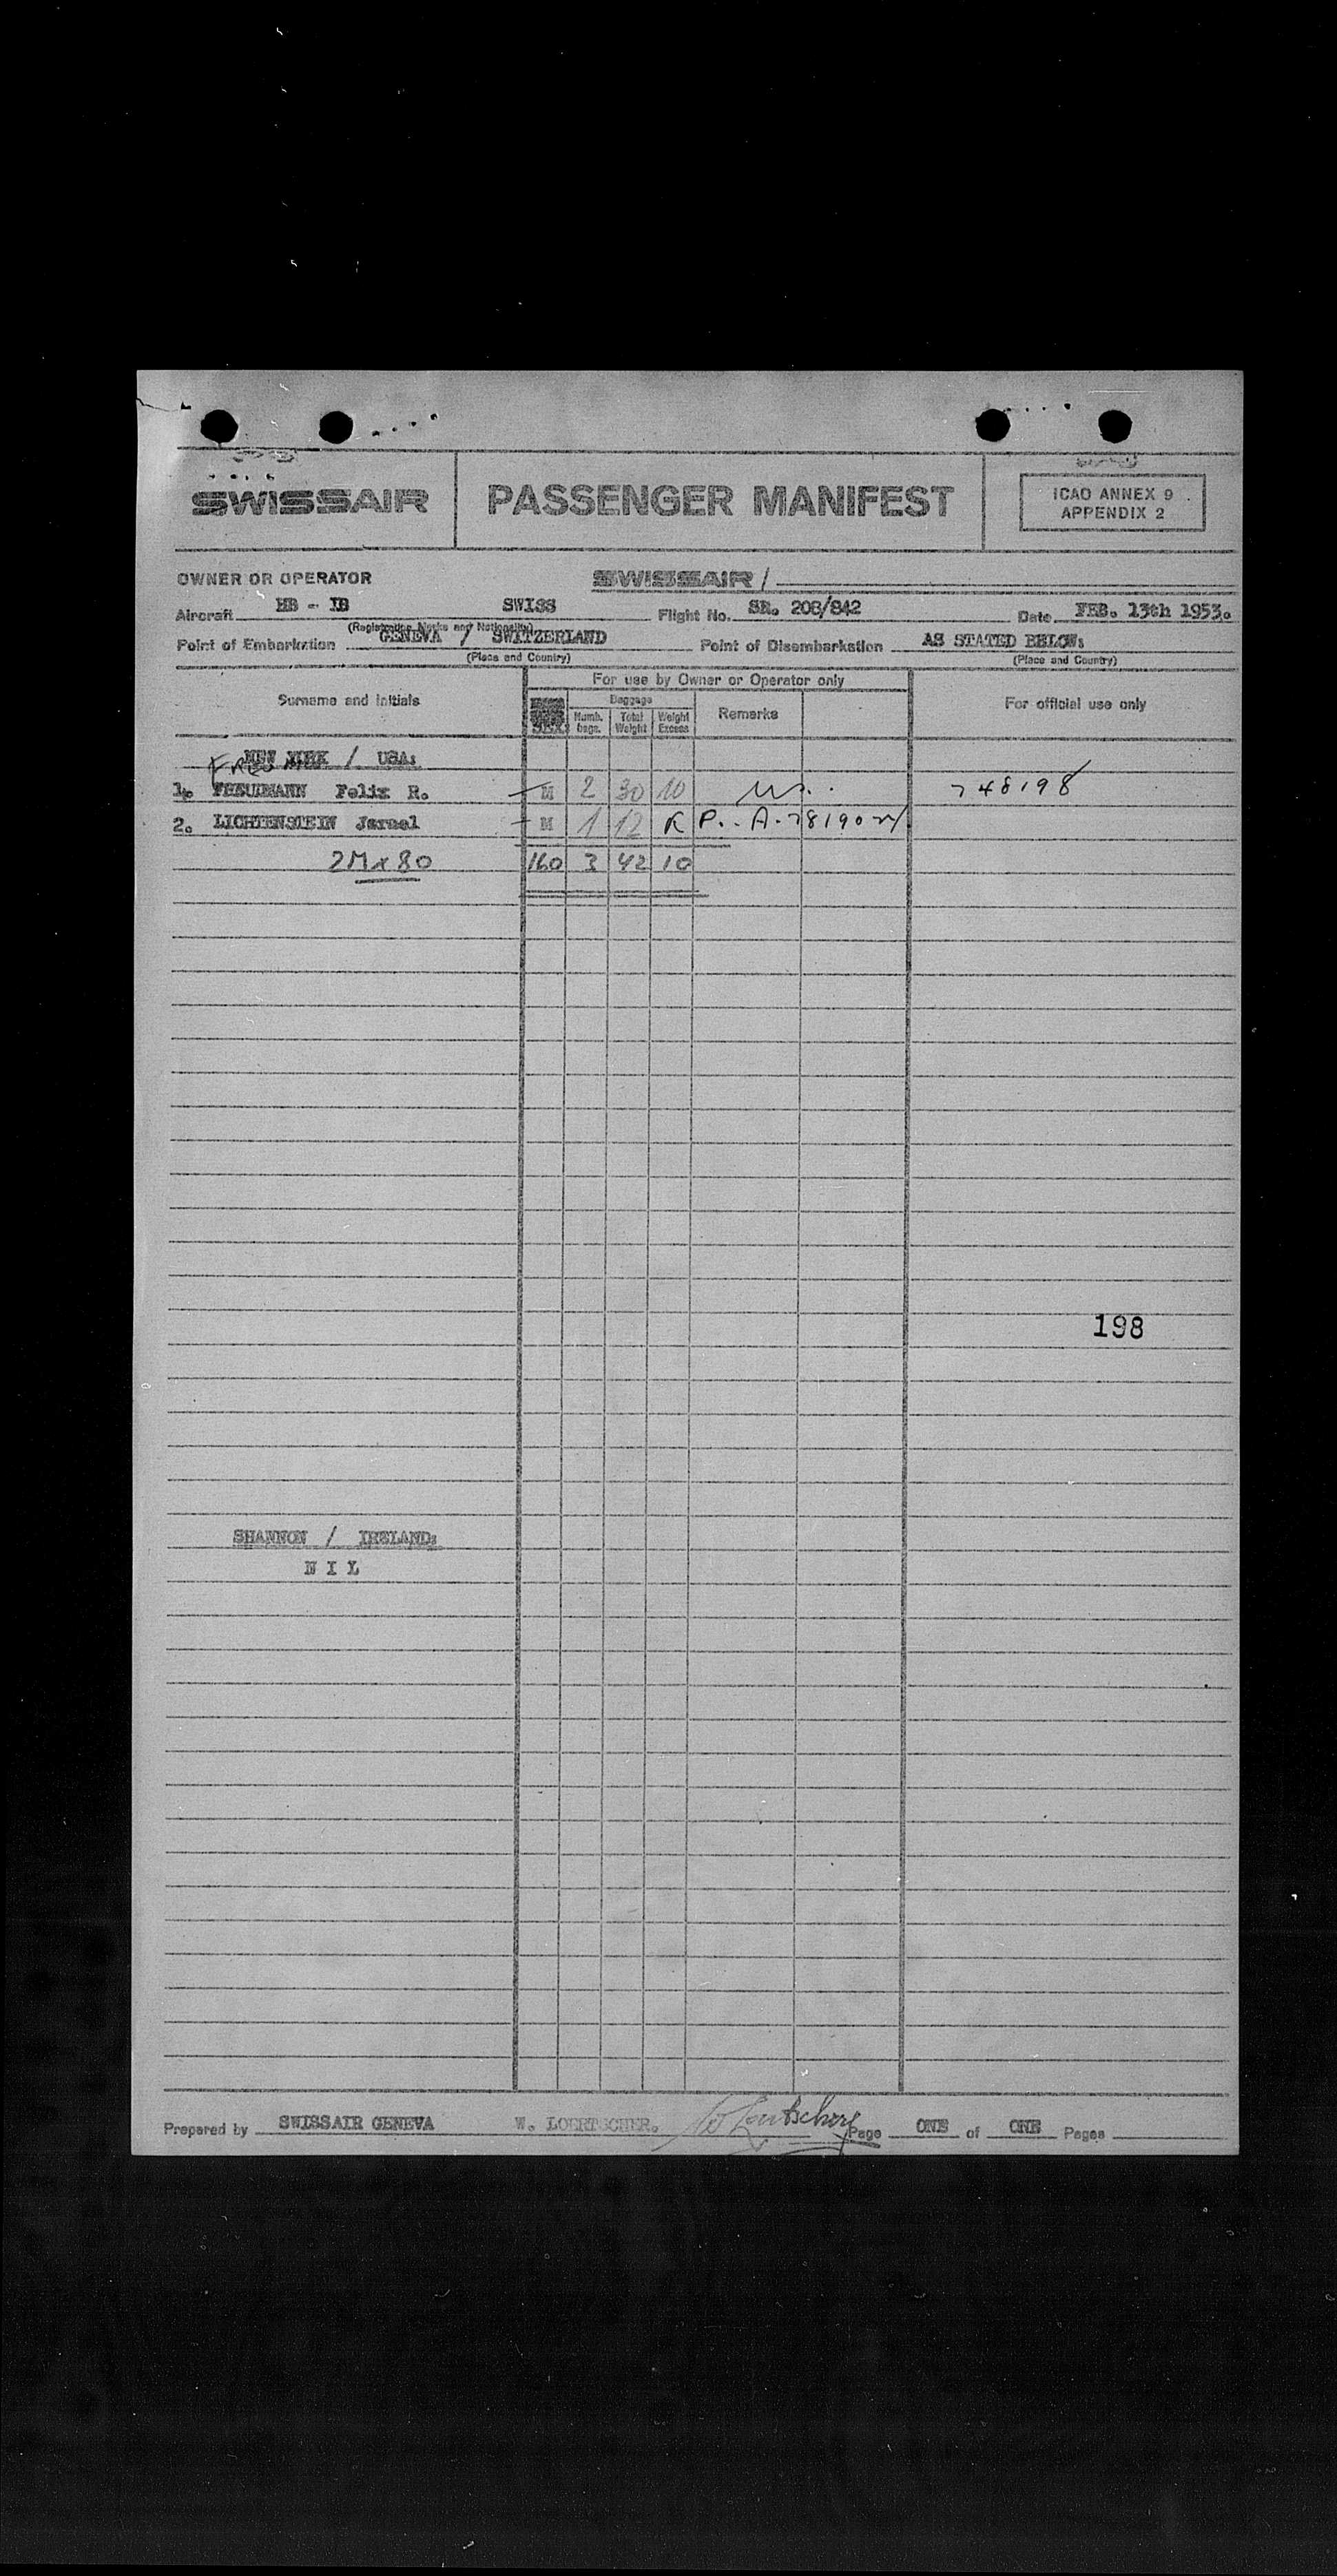 SWISSAIR PASSENGER MANIFEST ICAO ANNEX 9
APPENDIX 2
OWNER OR OPERATOR SWISSAIR /
Aircraft HB - IB SWISS Flight No. SR. 208/842 Date FEB. 13th 1953.
(Registration Marks and Nationality)
Point of Embarkation GENEVA / SWITZERLAND Point of Disembarkation AS STATED BELOW:
(Place and Country) (Place and Country)
For use by Owner or Operator only
Surname and initials Baggage Remarks For official use only
SEX Numb. bags. Total Weight Weight Excess
NEW YORK / USA:
1. Felix R. M 2 30 10 748198
2. LICHTENSTEIN Jsrael M 1 12 K P.. A.
2M x 80 160 3 42 10
198
SHANNON / IRELAND:
N I L
Prepared by SWISSAIR GENEVA W. LOERTSCHER. Page ONE of ONE Pages